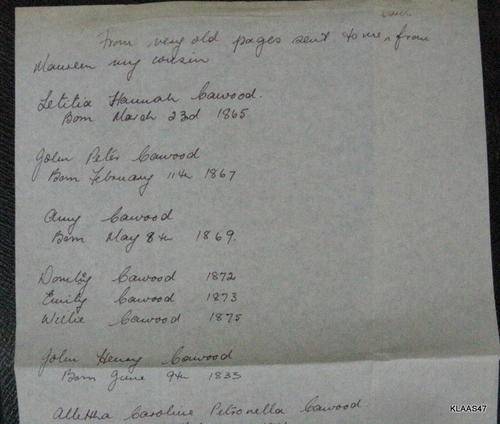 From very old pages sent to me, from
Maureen my cousin
Letitia Hannah Cawood.
Born March 23d 1865
John Peter Cawood
Born February 11th 1867
Amy Cawood
Born May 8th 1869.
Cawood 1872
Emily Cawood 1873
Willie Cawood 1875
John Henry Cawood
Born June 9th 1833
Alletha Caroline Petronella Cawood
KLAAS47